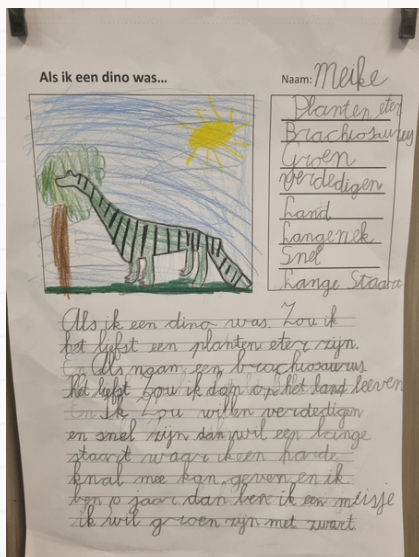 Als ik een dino was...
Naam: Meike
Planten eter
Brachiosaurus
Groen
verdedigen
Land
Lange nek
Snel
Lange Staart
Als ik een dino was. Zou ik
het liefst een planten eter zijn.
Als naam een brachiosaurus
het liefst Zou ik dan op het land leeven
En Ik Zou willen verdedigen
en snel zijn dan wil een lange
staart waar ik een harde
knal mee kan geven en ik
ben jaar dan ben ik een meisje
ik wil groen zijn met zwart